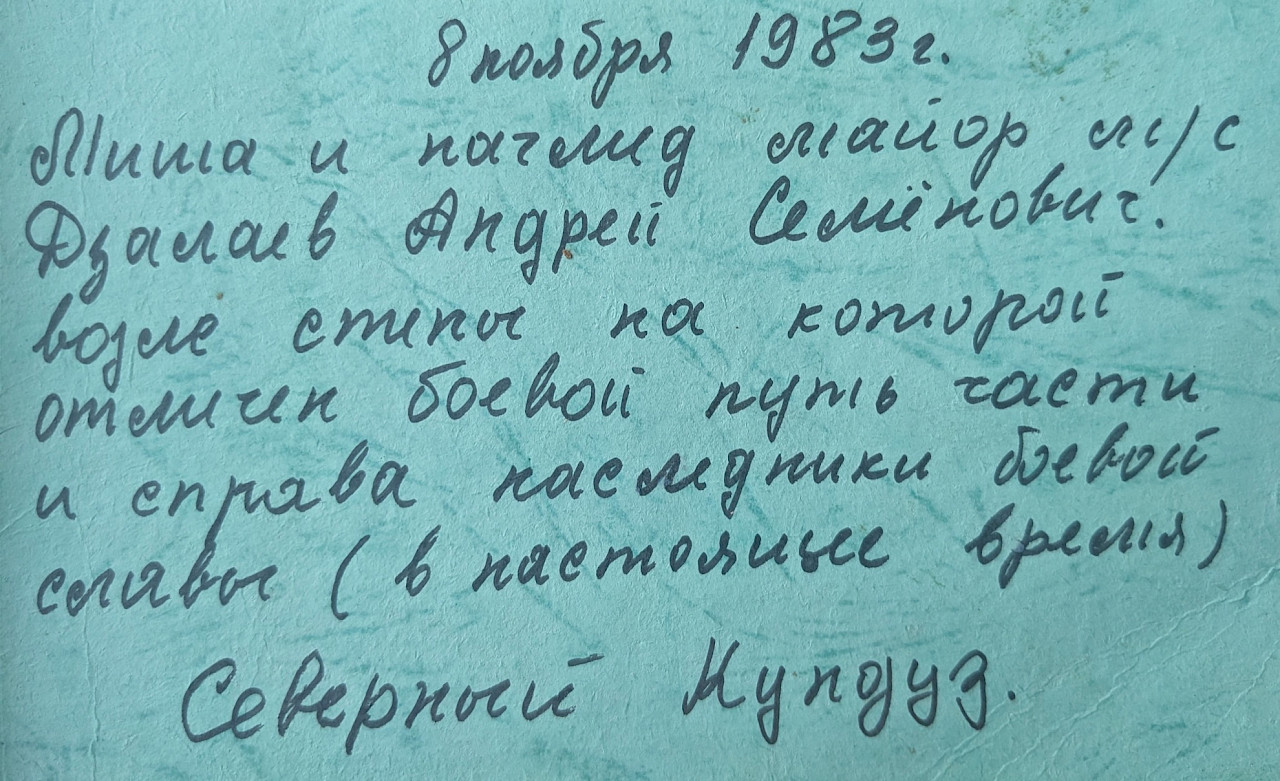 8 ноября 1983 г.
Миша и начмед майор м/с
Дзалаев Андрей Семёнович.
возле стены на которой
отмечен боевой путь части
и справа наследники боевой
славы (в настоящее время)
Северный Кундуз.